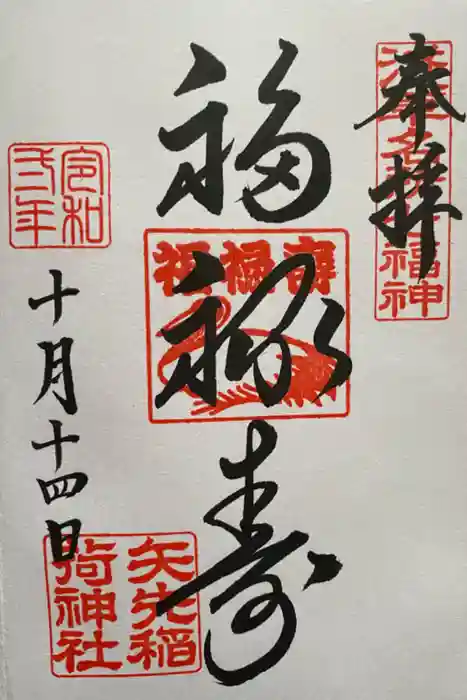 奉拝
浅草名所七福神
福禄寿
寿福禄
令和
弐年
十月十四日
矢先稲
荷神社